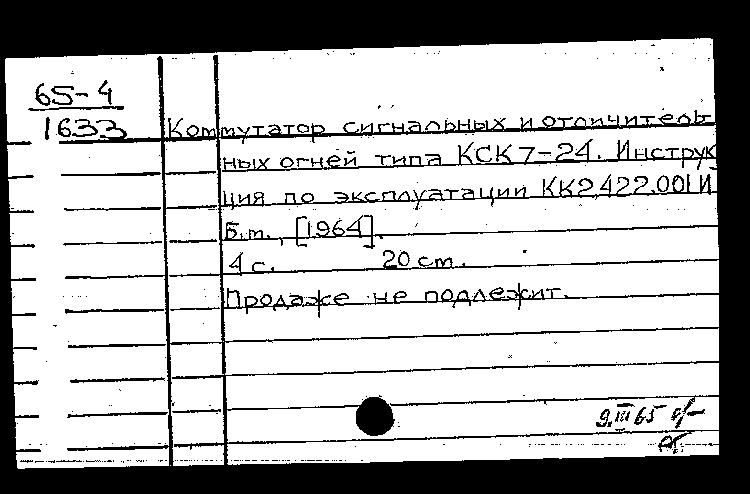 65-4
1633
Коммутатор сигнальных и отличитель-
ных огней типа КСК7-24. Инструк
ция по эксплуатации КК2.422.001 И
Б.м., [1964].
4 с. 20 см.
Продаже не подлежит.
9.III 65